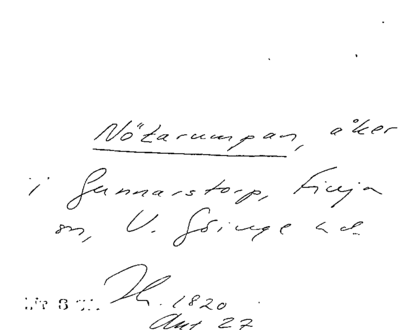 Nötarumpan, åker
i Gunnarstorp, Finja
sn, V. Göinge hd.
1820
Akt 27